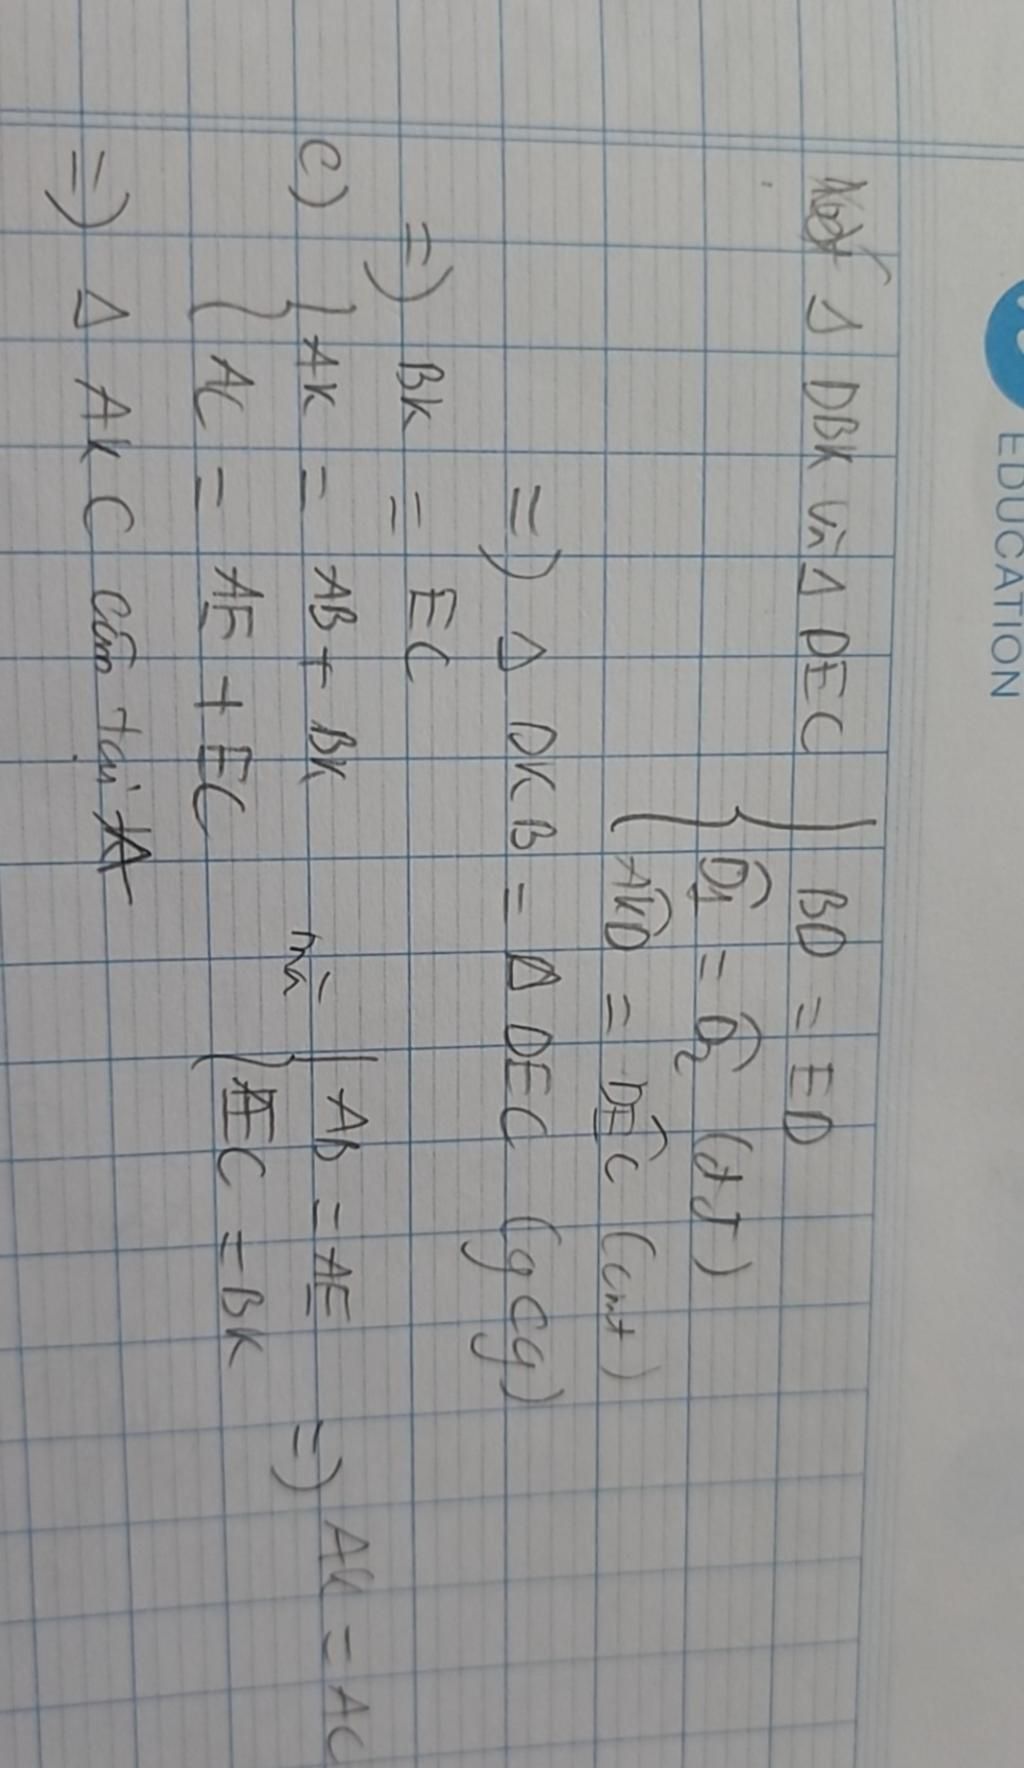 EDUCATION
Xét Δ DBK và Δ DEC { BD = ED
D̂₁ = D̂₂ (đđ)
AK̂D = DÊC (cmt)
=) Δ DKB = Δ DEC (gcg)
=) BK = EC
c) { AK = AB + BK mà { AB = AE =) AK = AC
AC = AE + EC EC = BK
=) Δ AKC cân tại A